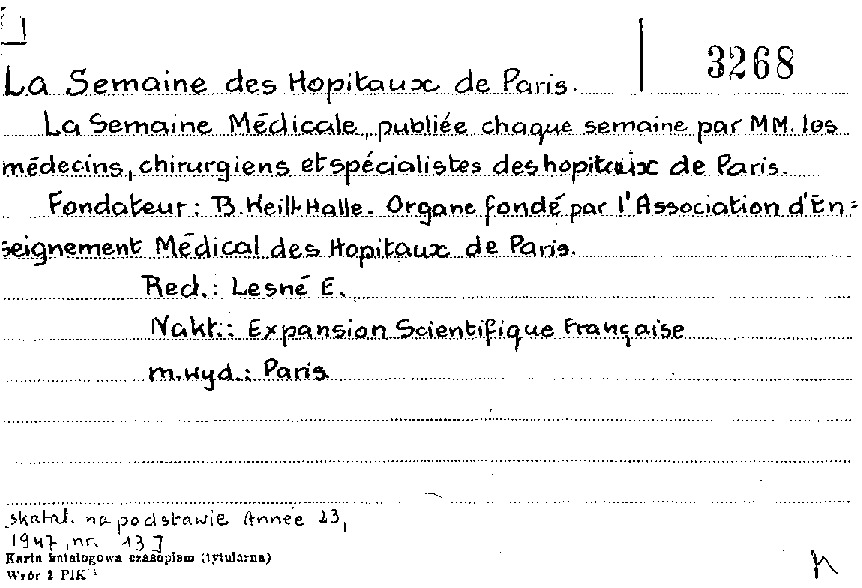 3268
La Semaine des Hopitaux de Paris.
La Semaine Médicale, publiée chaque semaine par MM. les
médecins, chirurgiens et spécialistes des hopitaux de Paris.
Fondateur: B. Weill-Halle. Organe fondé par l'Association d'En=
seignement Médical des Hopitaux de Paris.
Red.: Lesné E.
Nakł.: Expansion Scientifique Française
m. wyd.: Paris
skatal. na podstawie Année 23,
1947, nr. 13]
Karta katalogowa czasopism (tytularna)
Wzór 2 PIK